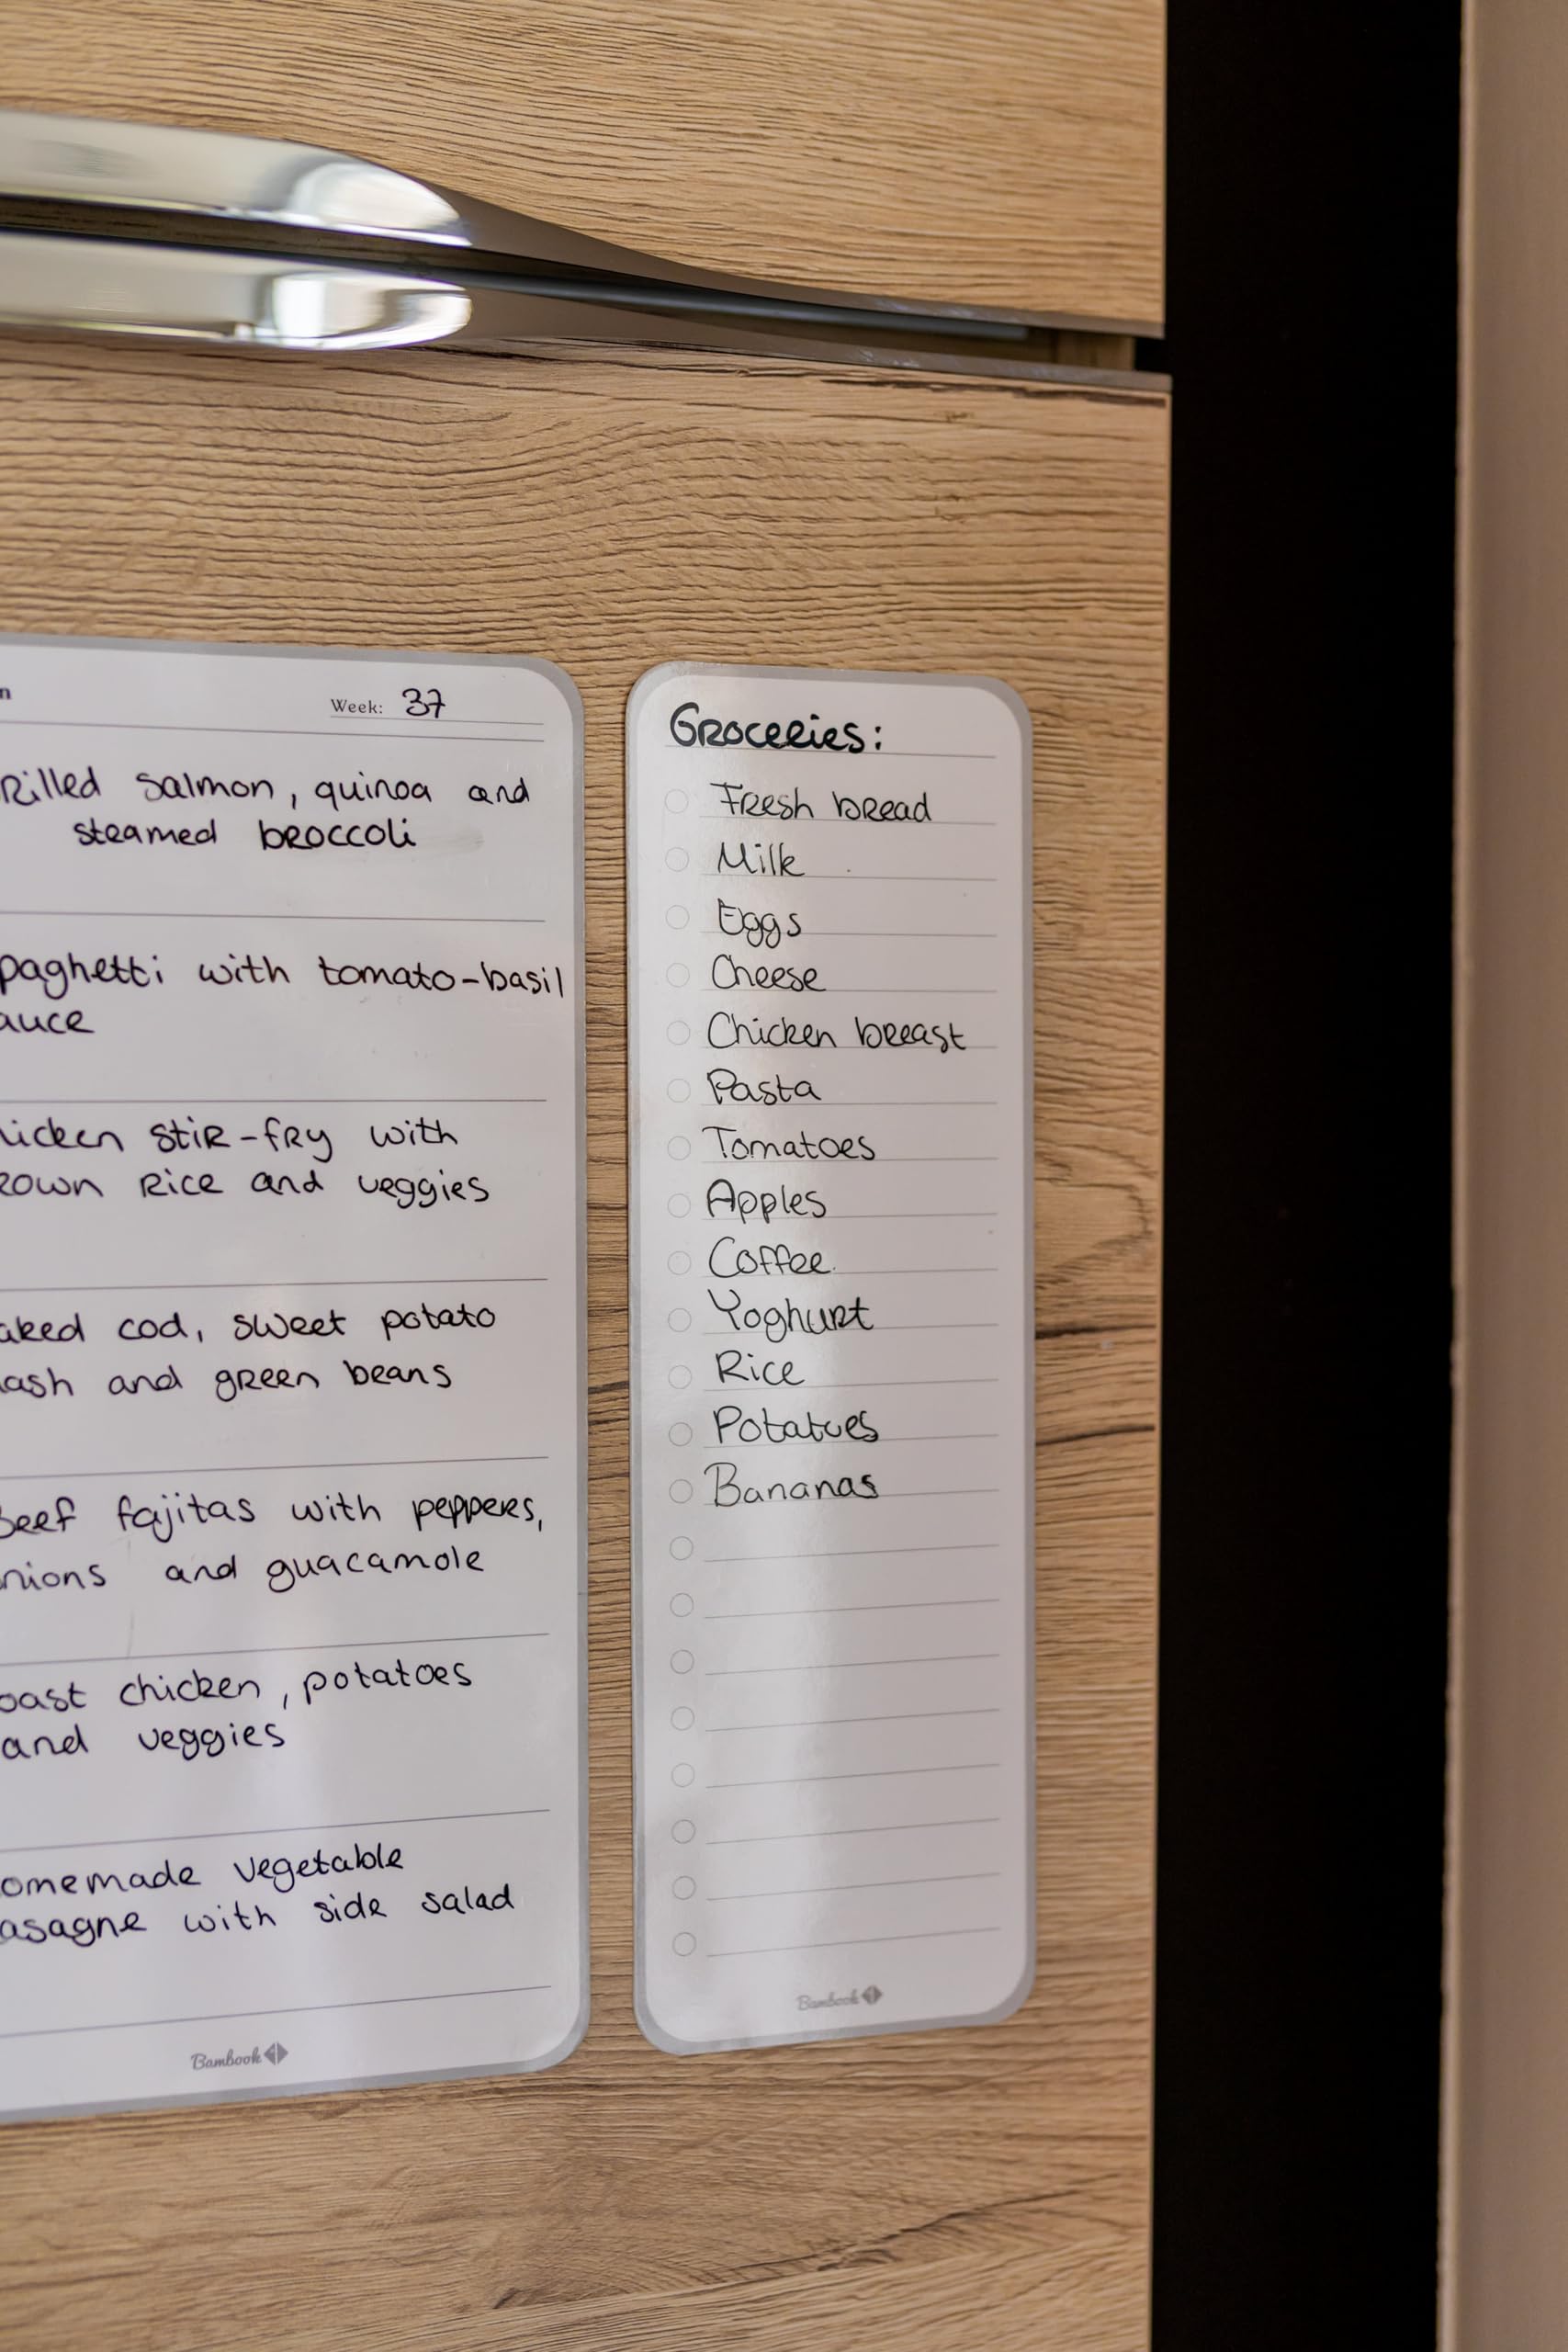 n
Week: 37
Rilled salmon, quinoa and
steamed broccoli
paghetti with tomato-basil
auce
icken stir-fry with
rown rice and veggies
aked cod, sweet potato
ash and green beans
Beef fajitas with peppers,
nions and guacamole
oast chicken, potatoes
and veggies
omemade vegetable
asagne with side salad
Bambook
Groceries:
Fresh bread
Milk
Eggs
Cheese
Chicken breast
Pasta
Tomatoes
Apples
Coffee
Yoghurt
Rice
Potatoes
Bananas
Bambook